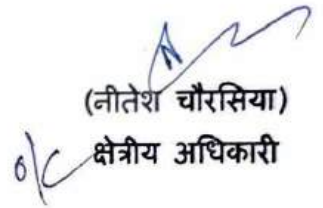 (नीतेश चौरसिया)
o/c क्षेत्रीय अधिकारी